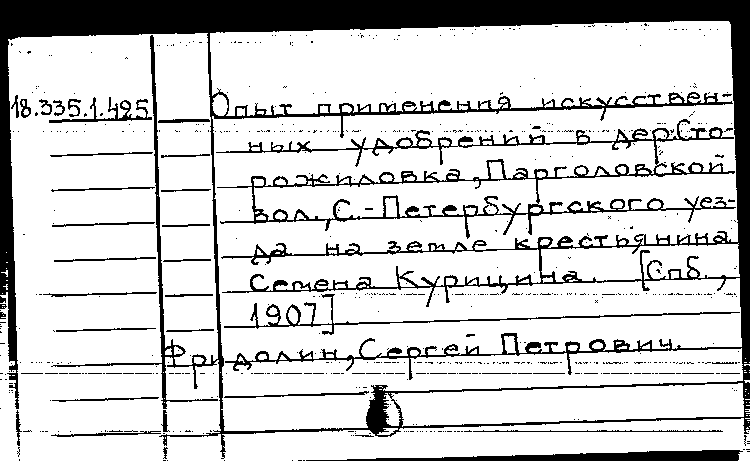 18.335.1.425 Опыт применения искусствен-
ных удобрений в дер.Сто-
рожиловка, Парголовской
вол., С.-Петербургского уез-
да на земле крестьянина
Семена Курицина. [Спб.,
1907]
Фридолин, Сергей Петрович.